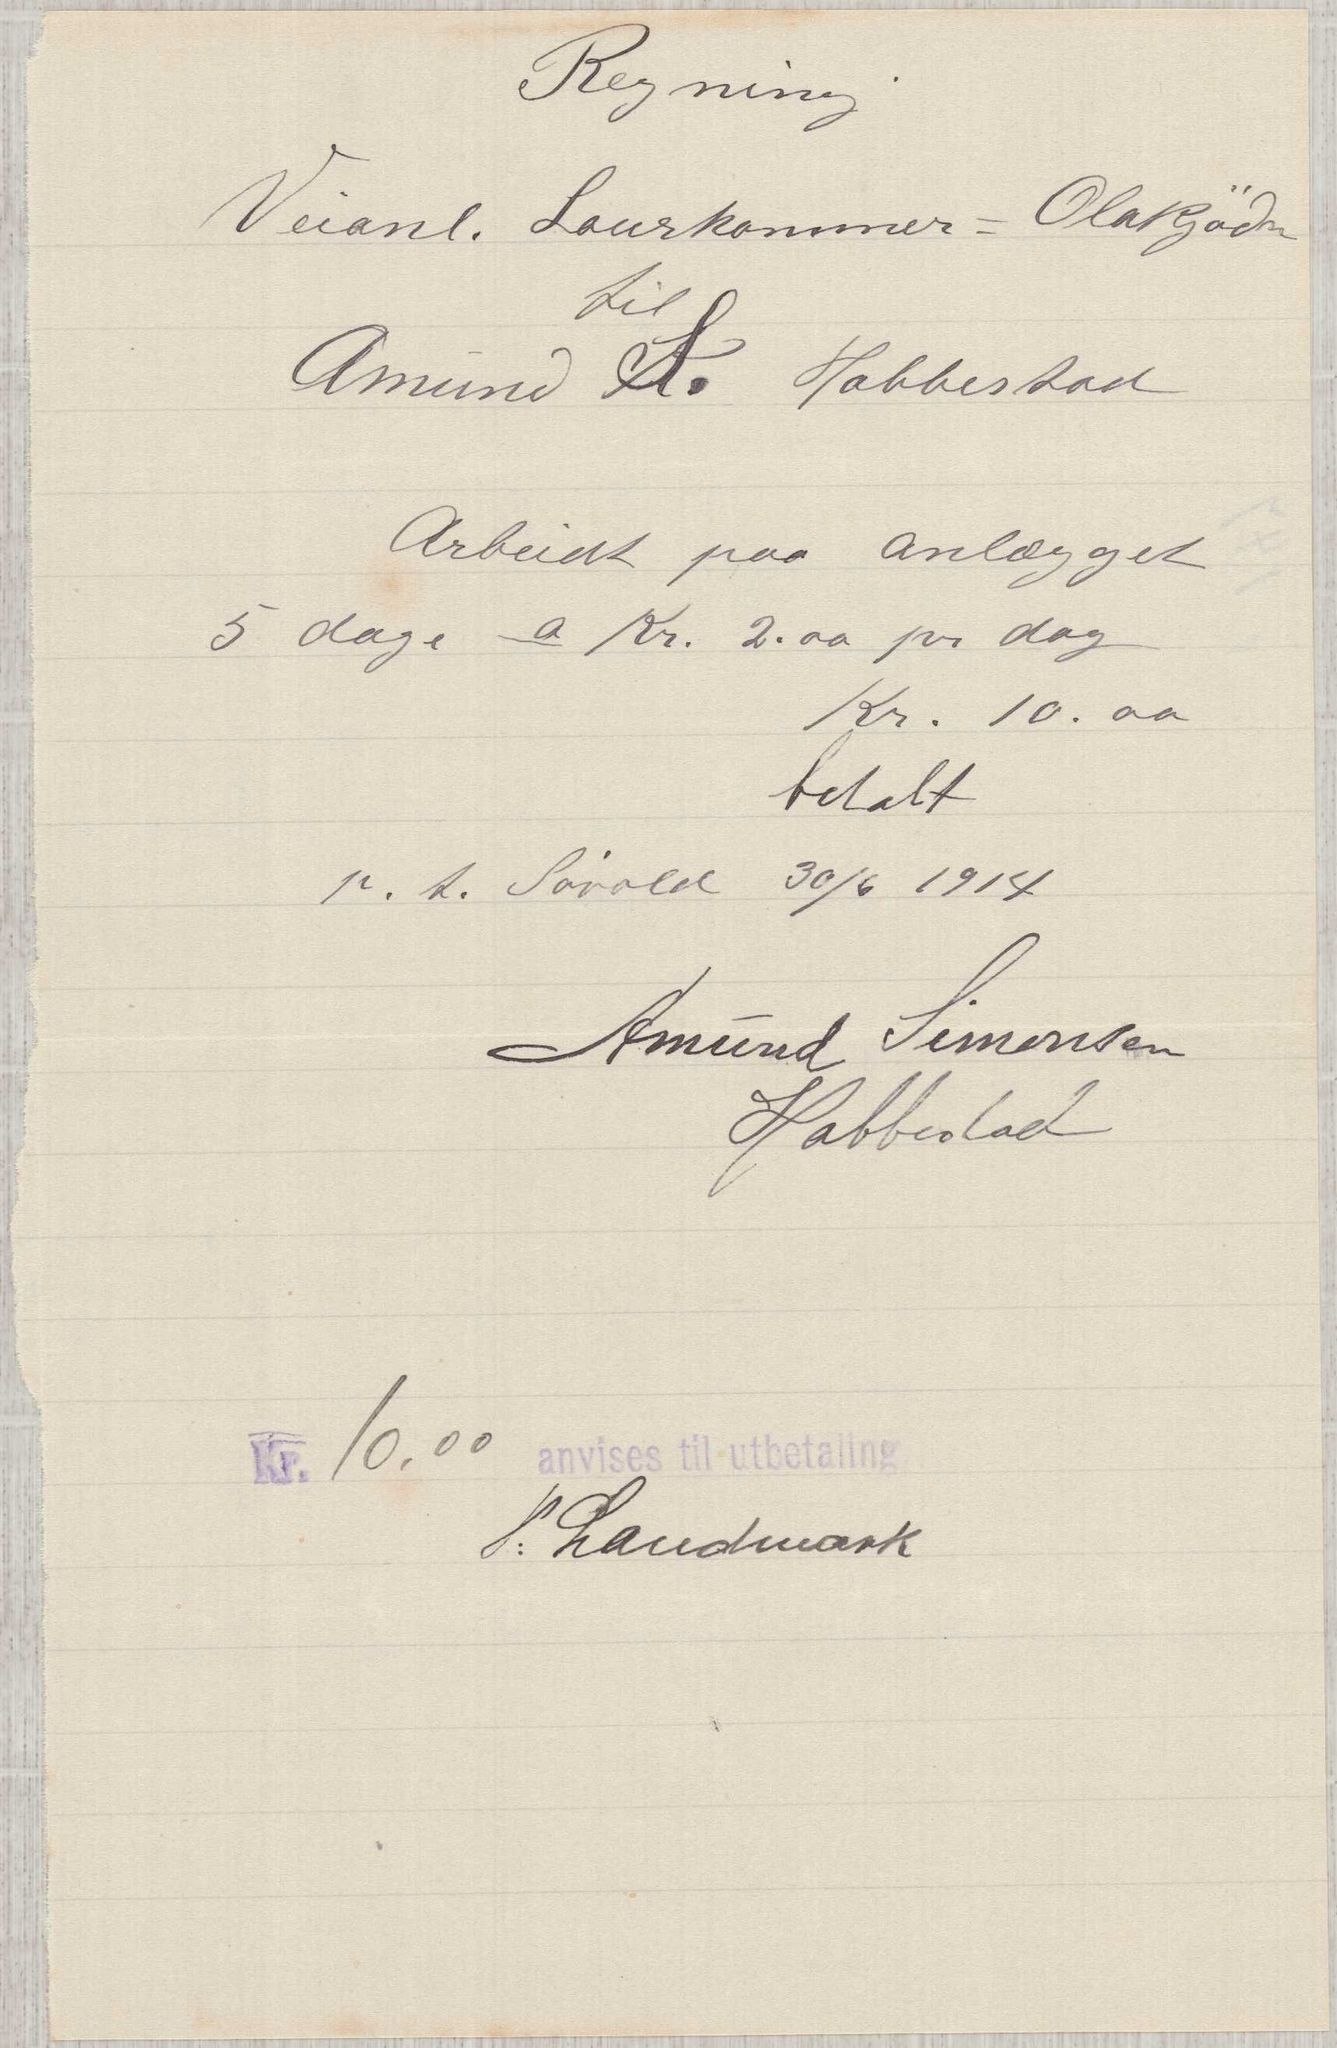 Regning
Veianl. Laurkammer = Olakjödn
til
Amund S. Habbestad
Arbeidt paa anlægget
5 dage a Kr. 2.00 pr dag
Kr. 10.00
betalt
p. t. 30/6 1914
Amund Simonsen
Habbestad
Kr. 10.00 anvises til utbetaling
P: Landmark